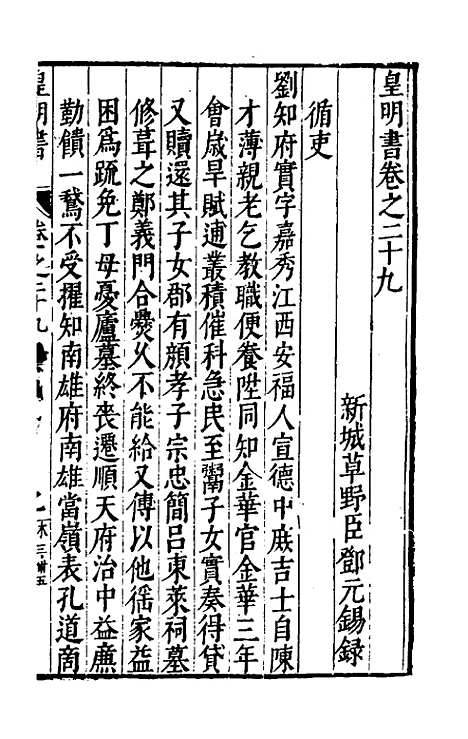 皇明書卷之二十九
新城草野臣鄧元錫錄
循吏
劉知府實字嘉秀江西安福人宣德中庶吉士自陳
才薄親老乞教職便養陞同知金華官金華三年
會歲旱賦逋叢積催科急民至鬻子女實奏得貸
又贖還其子女郡有顏孝子宗忠簡呂東萊祠墓
修葺之鄭義門合爨久不能給又傅以他徭家益
困為疏免丁母憂廬墓終喪遷順天府治中益廉
勤饋一鵞不受擢知南雄府南雄當嶺表孔道商
皇明書
卷之二十九